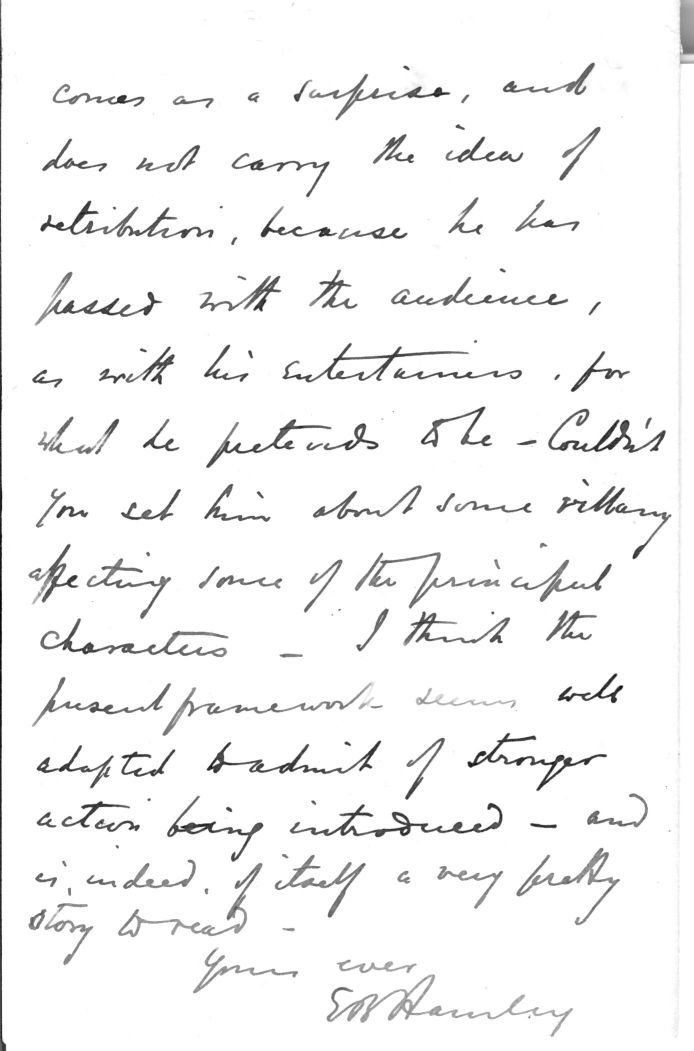 comes as a surprise, and
does not carry the idea of
retribution, because he has
passed with the audience,
as with his entertainers, for
what he pretends to be – Couldn't
you set him about some villany
affecting some of the principal
characters – I think the
present framework seems well
adapted to admit of stronger
action being introduced – and
is, indeed, of itself a very pretty
story to read –
Yours ever
EB Hamley